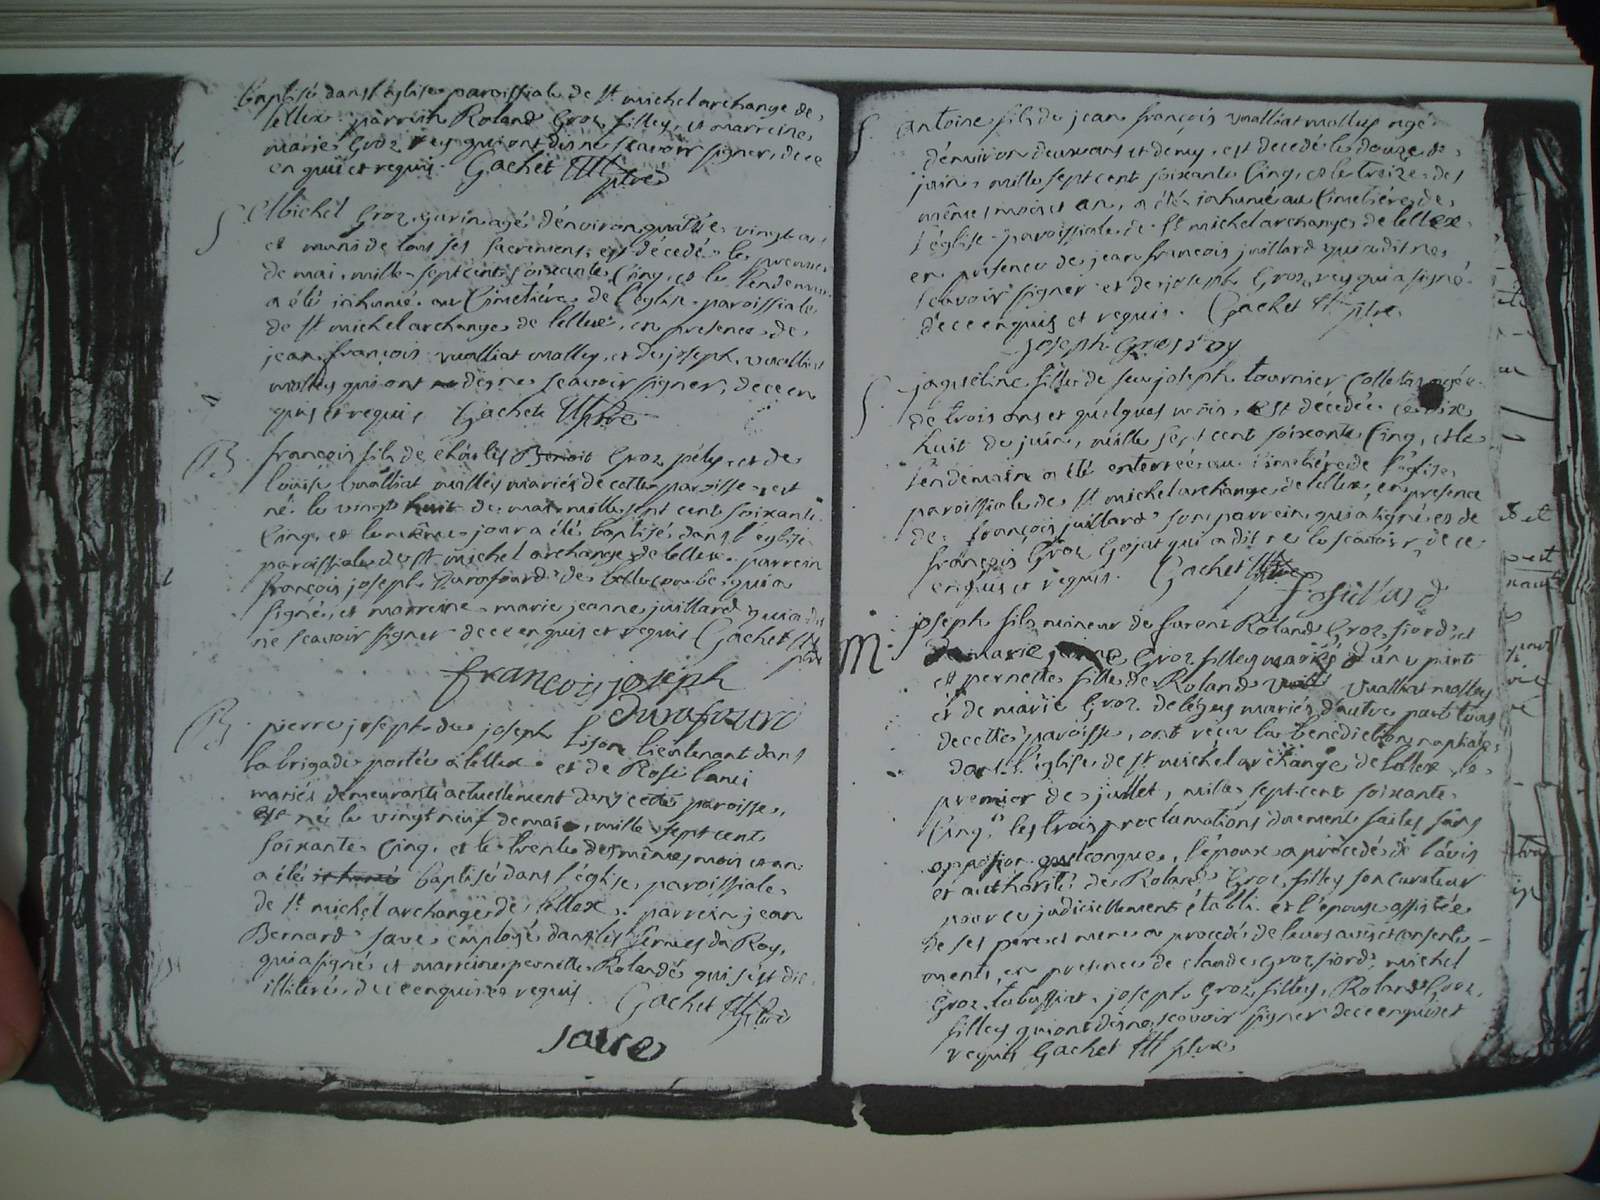 baptisé dans l'église paroissiale de st michel archange de
lellex. parrein Roland Groz filley, et marreine
marie Groz rey qui ont dis ne scavoir signer, de ce
enquis et requis. Gachet ptre
S
Michel Groz gurin agé d'environ quattre vingt ans
et muni de tous ses sacrements est décedé le premier
de mai mille sept cent soixante cinq, et le lendemain
a été inhumé au cimetiére de l'église paroissiale
de st michel archange de lellex, en presence de
jean françois vualliat malley, et de joseph vualliat
malley qui ont dis ne scavoir signer, de ce en
quis et requis Gachet ptre
B
françois fils de charles Benoit Groz pély, et de
louise vualliat malley mariés de cette paroisse est
né le vingt huit de mai mille sept cent soixante
cinq, et le même jour a été baptisé dans l'église
paroissiale de st michel archange de lellex. parrein
françois joseph Durafourd de bellecombe qui a
signé, et marreine marie jeanne juillard qui a dit
ne scavoir signer de ce enquis et requis Gachet
ptre
françois joseph
Durafourd
B
pierre joseph de joseph lieutenant dans
la brigade portée a lellex et de Rose
mariés demeurants actuellement dans cette paroisse,
est né le vingt neuf de mai, mille sept cent
soixante cinq, et le trente des même mois et an
a été inhumé baptisé dans l'église paroissiale
de st michel archange de lellex. parrein jean
Bernard Save employé dans les fermes du Roy,
qui a signé et marreine pernette Rolandé qui s'est dit
illiteré, de ce enquis et requis. Gachet ptre
Save
S
antoine fils de jean françois vualliat malley agé
d'environ deux ans et demy, est decedé le douze de
juin, mille sept cent soixante cinq, et le treize des
même mois et an, a été inhumé au cimetiére de
l'église paroissiale de st michel archange de lellex
en presence de jean françois juillard qui a dit ne
scavoir signer et de joseph Groz rey qui a signé
de ce enquis et requis. Gachet ptre
joseph Gros rey
S
jaqueline fille de feu joseph tournier colletaz agée
de trois ans et quelques mois, est décedée le dix
huit de juin, mille sept cent soixante cinq, et le
lendemain a été enterrée au cimetiére de l'église
paroissiale de st michel archange de lellex, en presence
de françois juillard son parrein qui a signé et de
françois Groz Gojat qui a dit ne le scavoir, de ce
enquis et requis. Gachet ptre
juillard
M.
joseph fils mineur de furent Roland Groz fiord, et
de marie Groz filley mariés d'une part
et pernette fille de Roland vualliat malley
et de marie Groz delegus mariés d'autre part tous
de cette paroisse, ont reçu la benediction nuptiale
dans l'église de st michel archange de lellex le
premier de juillet, mille sept cent soixante
cinq, les trois proclamations duement faites sans
opposition quelconque, l'epoux a procedé de l'avis
et authorité de Roland Groz filley son curateur
pour ce judiciellement établi et l'epouse assistée
de ses pere et mere a procedé de leurs avis et consente-
ment, en presence de claude Groz fiord, michel
Groz tabussiat, joseph Groz filley, Roland Groz
filley qui ont dis ne scavoir signer de ce enquis et
requis Gachet ptre